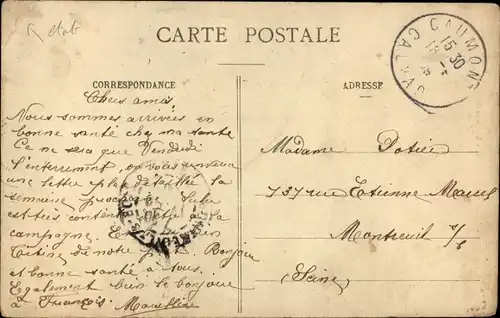 à rétab
CARTE POSTALE
CAUMONT
15 30
15 -1
CALVADOS
CORRESPONDANCE
ADRESSE
Chers amis,
Nous sommes arrivées en
bonne santé chez ma tante
Ce ne sera que Vendredi
l'enterrement, on vous enverra
une lettre plus détaillée la
semaine prochaine.
est très content d'être à la
campagne.
Titine de notre part. Bonjour
et bonne santé à tous.
Egalement bien le bonjour
à François.
Madame Potier
737 rue Etienne Marcel
Montreuil s/s
Seine